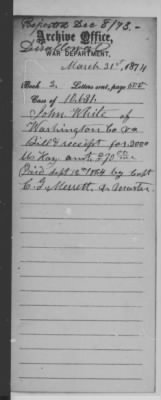 Reported Dec 8/73.
Disallowed
Archive Office,
WAR DEPARTMENT,
March 31st, 1874
Book 3. Letters sent, page
Case of
John White of
Washington Co Va
Bill & receipt for 3000
lbs Hay amt $270
Paid Sept 12th 1864 by Capt
C. J. Merrett, Qr Master